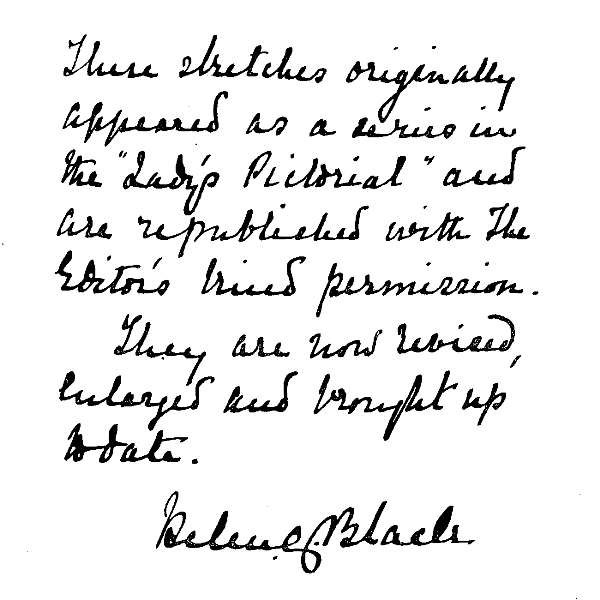 These sketches originally
appeared as a series in
the "Lady's Pictorial" and
are republished with the
Editor's kind permission.
They are now revised,
enlarged and brought up
to date.
Helen C. Black.